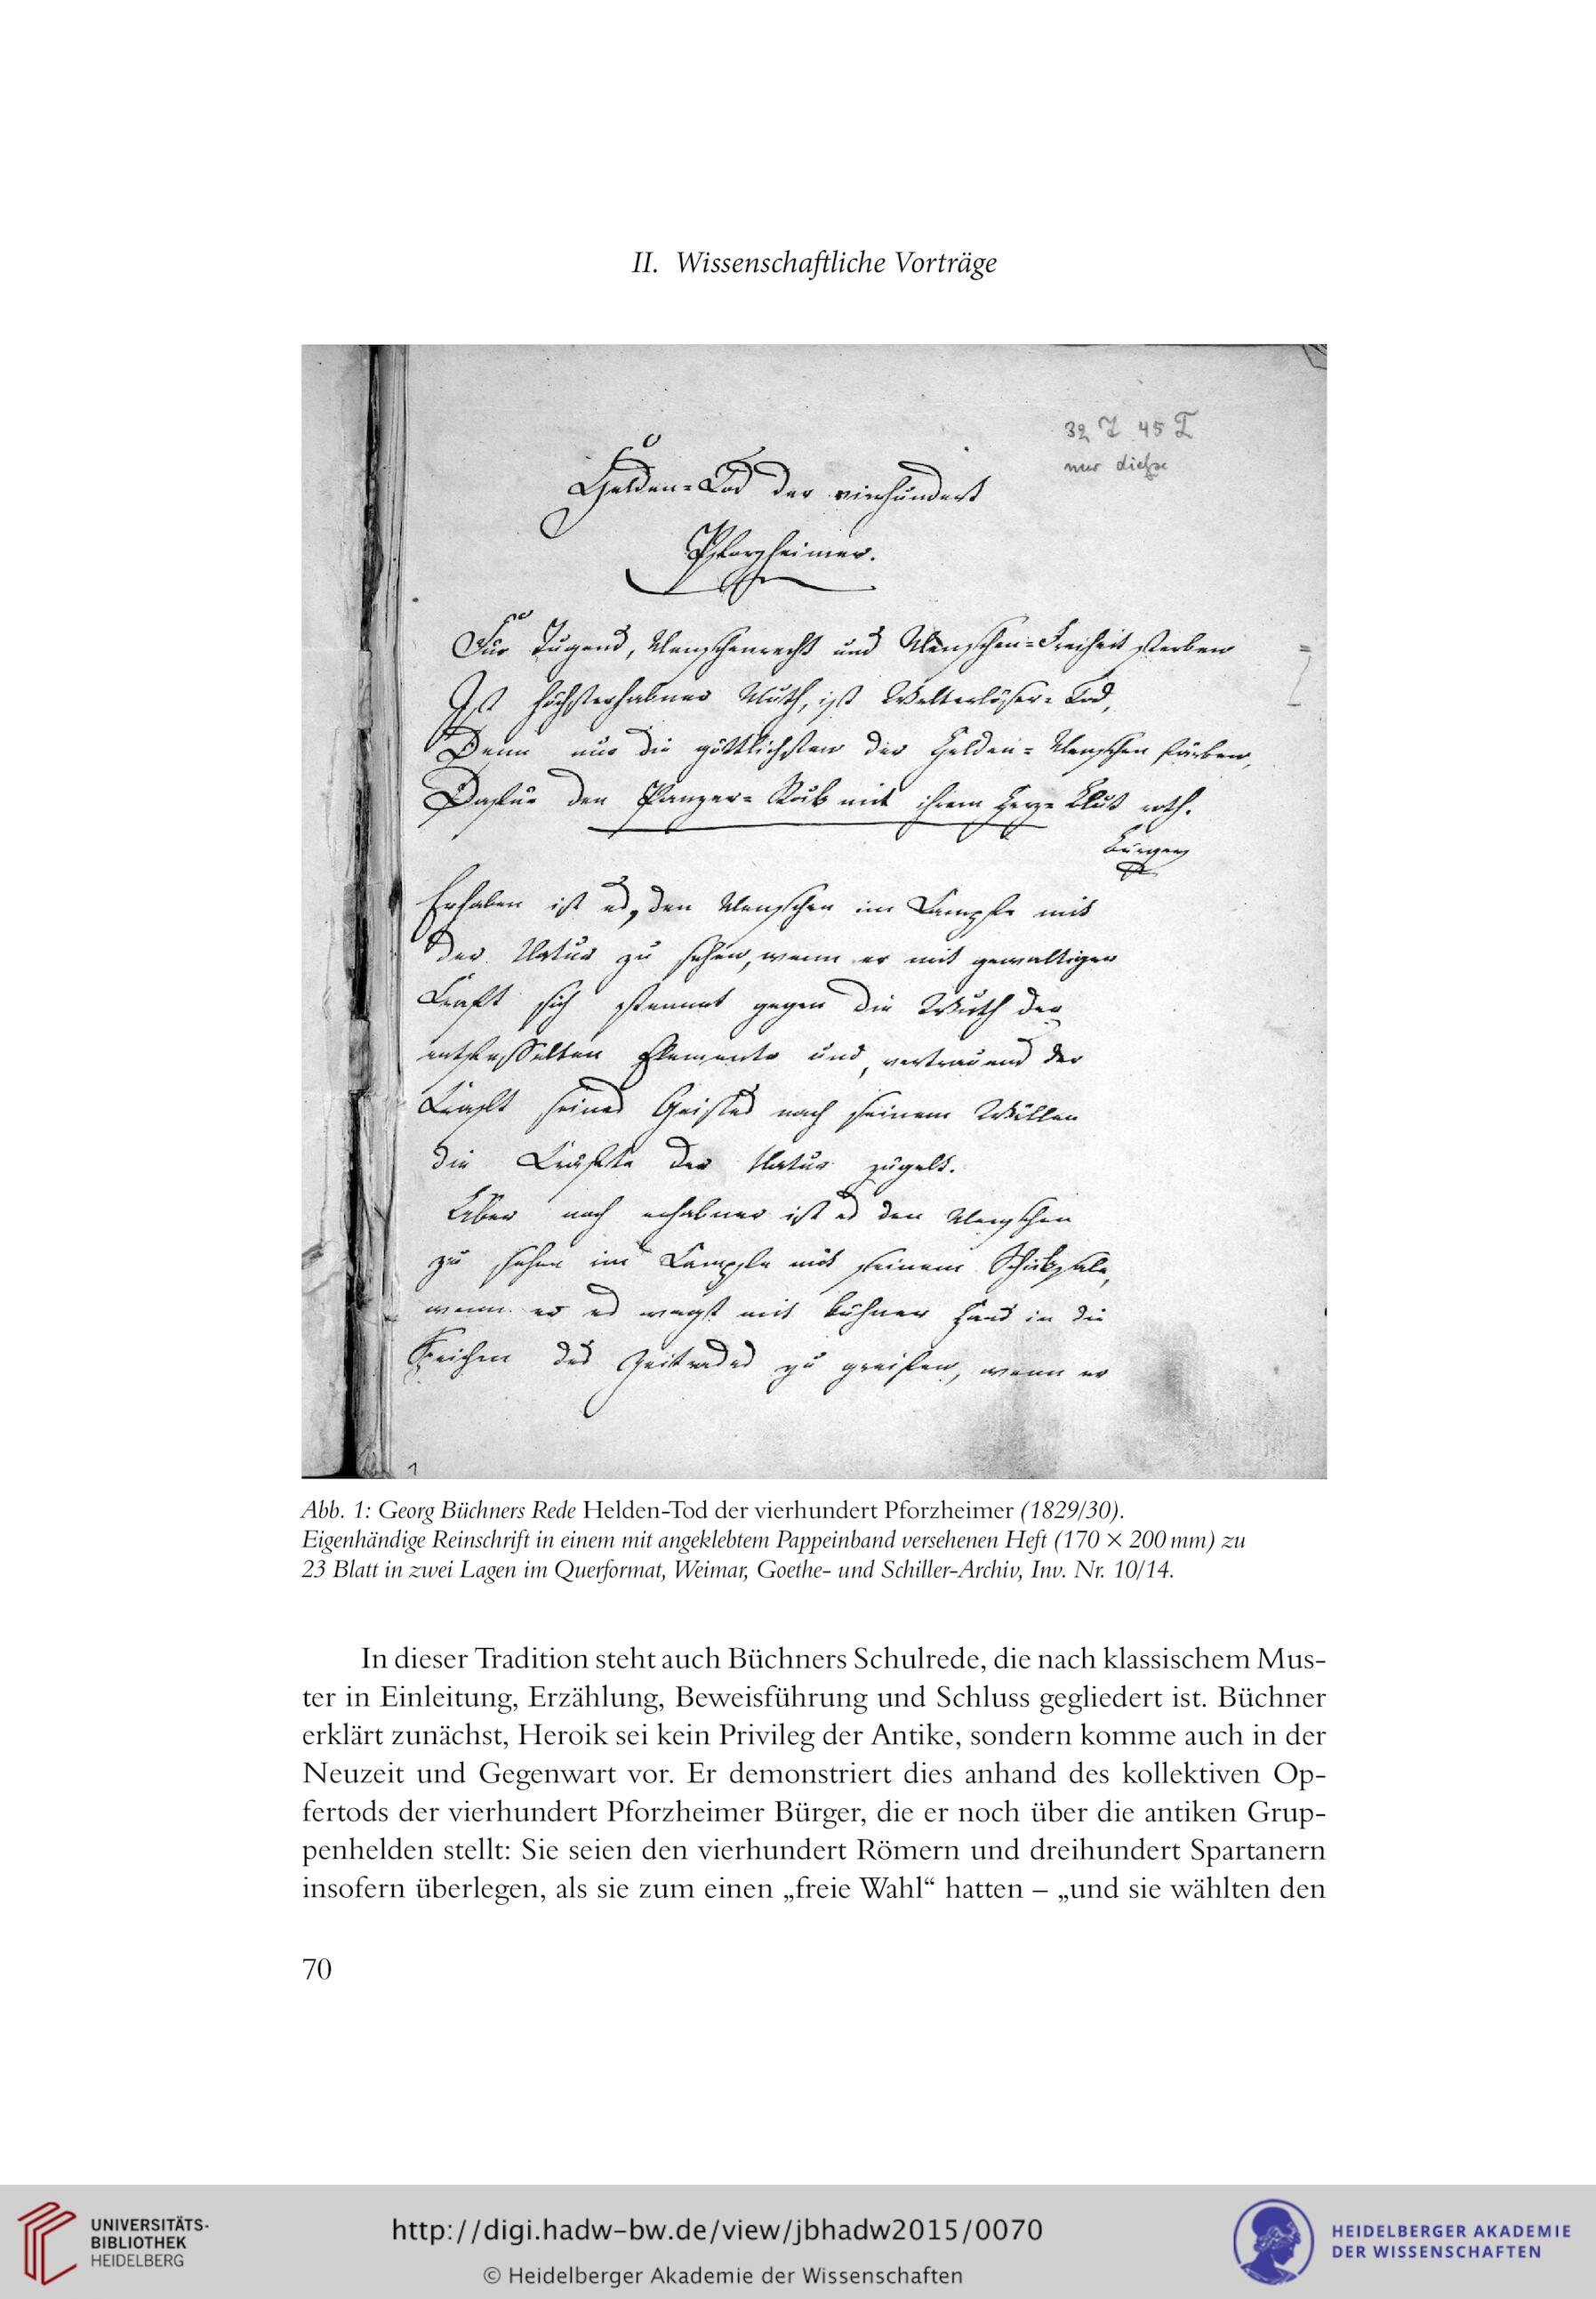 II. Wissenschaftliche Vorträge
32 45
nur diese
Helden=Tod der vierhundert
Pforzheimer.
Für Tugend, Menschenrecht und Menschen=Freiheit sterben
Ist höchsterhabner Muth, ist Welterlöser=Tod,
Denn nur die göttlichsten der Helden=Menschen färben,
Dafür den Panzer=Rock mit ihrem Herz=Blut roth.
Bürger
Erhaben ist es, den Menschen im Kampfe mit
der Natur zu sehen, wenn er mit gewaltiger
Kraft sich stemmt gegen die Wuth der
entfesselten Elemente und, vertrauend der
Kraft seines Geistes nach seinem Willen
die Kräfte der Natur zügelt.
Aber noch erhabner ist es den Menschen
zu sehen im Kampfe mit seinem Schicksale,
wenn er es wagt mit kühner Hand in die
Speichen des Zeitrades zu greifen, wenn er
1
Abb. 1: Georg Büchners Rede Helden-Tod der vierhundert Pforzheimer (1829/30).
Eigenhändige Reinschrift in einem mit angeklebtem Pappeinband versehenen Heft (170 × 200 mm) zu
23 Blatt in zwei Lagen im Querformat, Weimar, Goethe- und Schiller-Archiv, Inv. Nr. 10/14.
In dieser Tradition steht auch Büchners Schulrede, die nach klassischem Mus-
ter in Einleitung, Erzählung, Beweisführung und Schluss gegliedert ist. Büchner
erklärt zunächst, Heroik sei kein Privileg der Antike, sondern komme auch in der
Neuzeit und Gegenwart vor. Er demonstriert dies anhand des kollektiven Op-
fertods der vierhundert Pforzheimer Bürger, die er noch über die antiken Grup-
penhelden stellt: Sie seien den vierhundert Römern und dreihundert Spartanern
insofern überlegen, als sie zum einen „freie Wahl“ hatten – „und sie wählten den
70
UNIVERSITÄTS-
BIBLIOTHEK
HEIDELBERG
http://digi.hadw-bw.de/view/jbhadw2015/0070
© Heidelberger Akademie der Wissenschaften
HEIDELBERGER AKADEMIE
DER WISSENSCHAFTEN